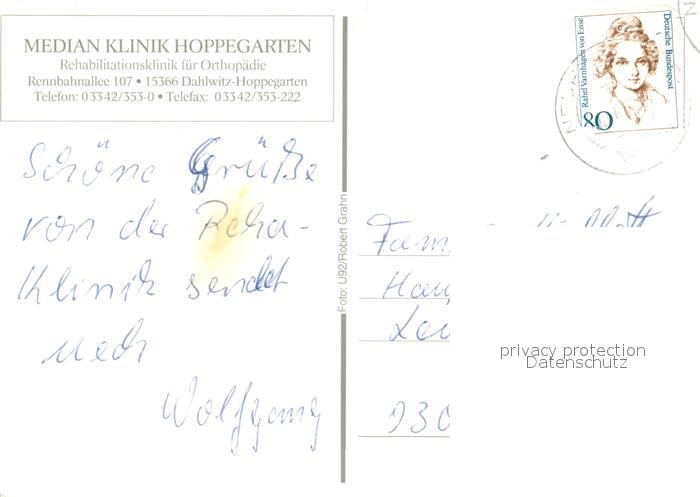 MEDIAN KLINIK HOPPEGARTEN
Rehabilitationsklinik für Orthopädie
Rennbahnallee 107 • 15366 Dahlwitz-Hoppegarten
Telefon: 0 33 42/353-0 • Telefax: 0 33 42/353-222
Schöne Grüße
von der Reha-
Klinik sendet
Wolfgang
Foto: U92/Robert Grahn
Rahel Varnhagen von Ense
Deutsche Bundespost
80
Fam
030
privacy protection
Datenschutz